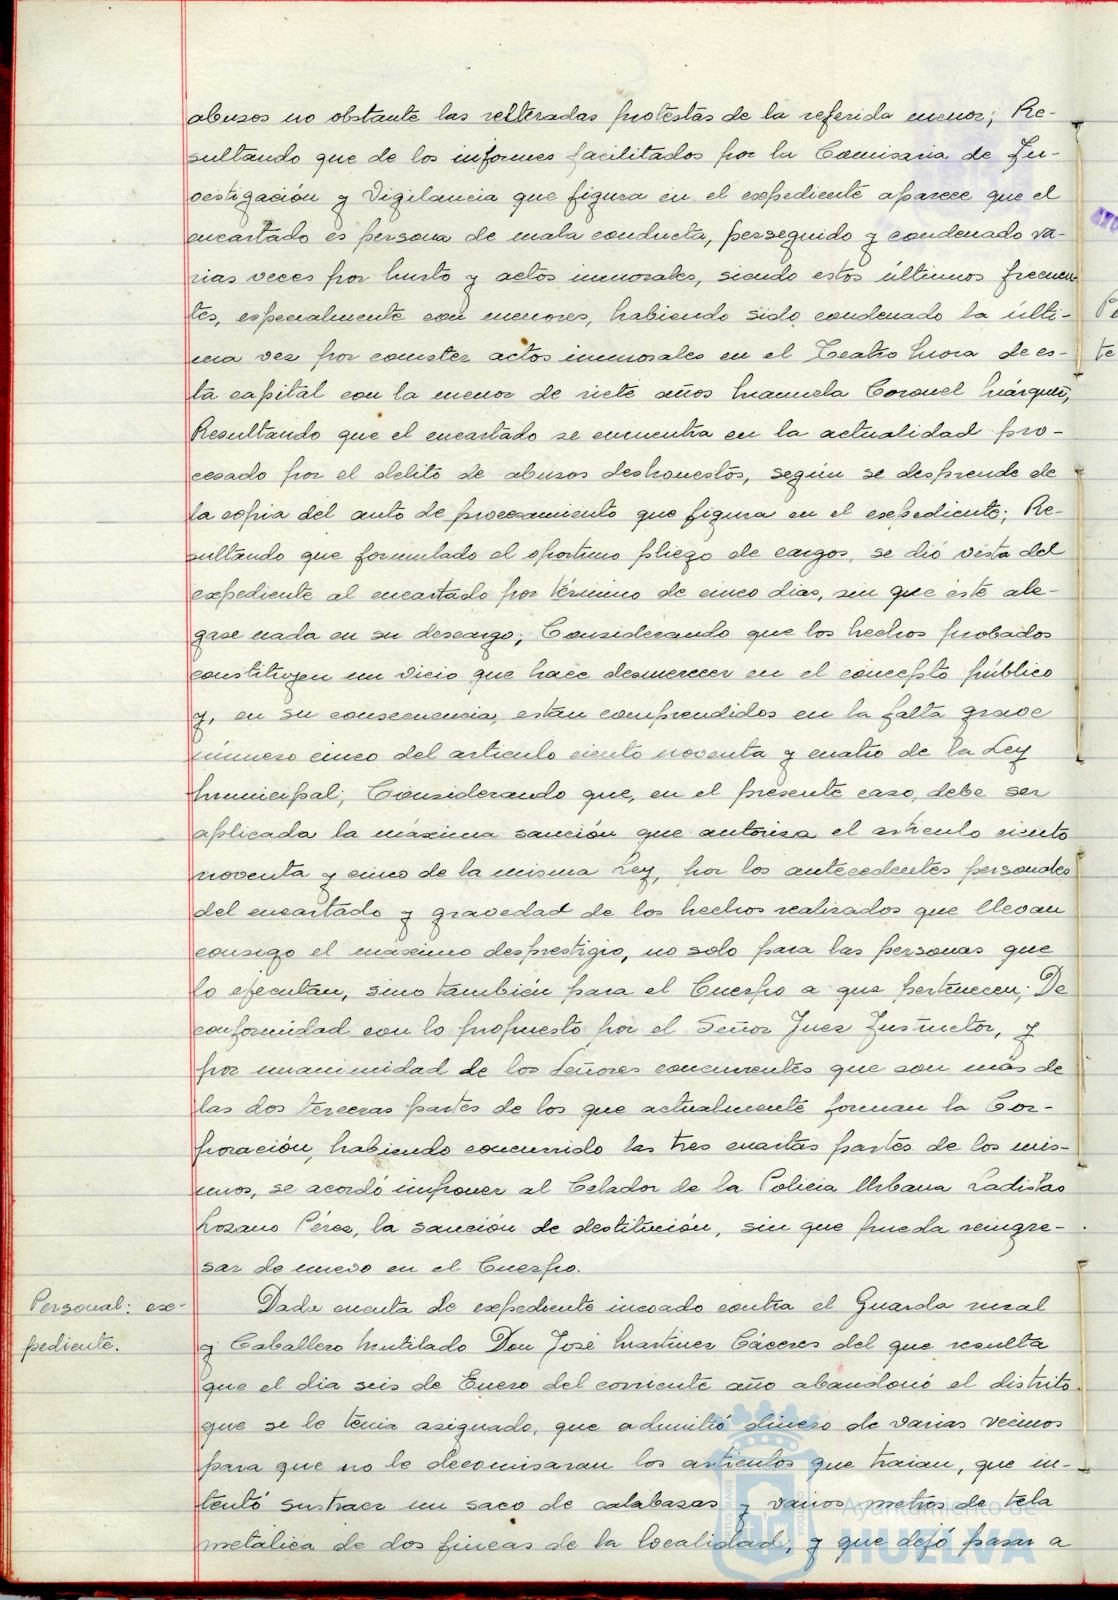 abusos no obstante las reiteradas protestas de la referida menor; Re-
sultando que de los informes facilitados por la Comisaria de In-
vestigación y Vigilancia que figura en el expediente aparece que el
encartado es persona de mala conducta, perseguido y condenado va-
rias veces por hurto y actos inmorales, siendo estos últimos frecuen-
tes, especialmente con menores, habiendo sido condenado la últi-
ma vez por cometer actos inmorales en el Teatro Mora de es-
ta capital con la menor de siete años Manuela Coronel Márquez;
Resultando que el encartado se encuentra en la actualidad pro-
cesado por el delito de abusos deshonestos, según se desprende de
la copia del auto de procesamiento que figura en el expediente; Re-
sultando que formulado el oportuno pliego de cargos, se dió vista del
expediente al encartado por término de cinco dias, sin que éste ale-
gase nada en su descargo; Considerando que los hechos probados
constituyen un vicio que hace desmerecer en el concepto público
y, en su consecuencia, estan comprendidos en la falta grave
número cinco del articulo ciento noventa y cuatro de la Ley
Municipal; Considerando que, en el presente caso, debe ser
aplicada la máxima sanción que autoriza el articulo ciento
noventa y cinco de la misma Ley, por los antecedentes personales
del encartado y gravedad de los hechos realizados que llevan
consigo el máximo desprestigio, no solo para las personas que
lo ejecutan, sino también para el Cuerpo a que pertenecen; De
conformidad con lo propuesto por el Señor Juez Instructor, y
por unanimidad de los Señores concurrentes que son más de
las dos terceras partes de los que actualmente forman la Cor-
poración, habiendo concurrido las tres cuartas partes de los mis-
mos, se acordó imponer al Celador de la Policia Urbana Ladislao
Lozano Pérez, la sanción de destitución, sin que pueda reingre-
sar de nuevo en el Cuerpo.
Personal: ex-
pediente.
Dada cuenta de expediente incoado contra el Guarda rural
y Caballero Mutilado Don José Martinez Cáceres del que resulta
que el dia seis de Enero del corriente año abandonó el distrito
que se le tenia asignado, que admitió dinero de varias vecinos
para que no le decomisaran los articulos que traian, que in-
tentó sustraer un saco de calabazas y varios metros de tela
metalica de dos fincas de la localidad, y que dejó pasar a
Ayuntamiento de
HUELVA